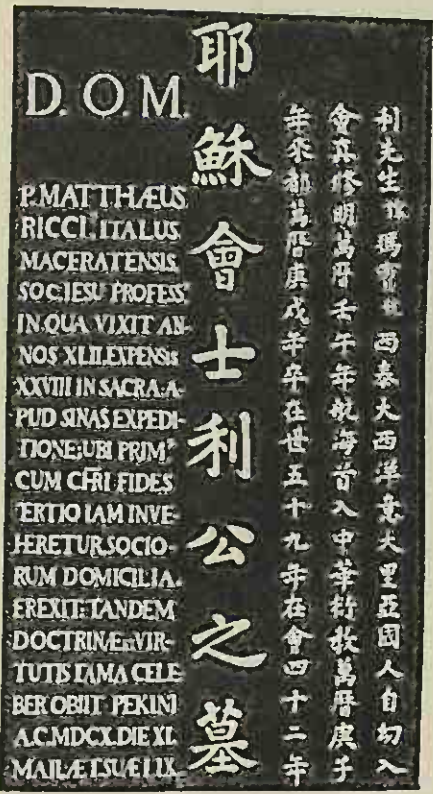 D. O. M.
P. MATTHÆUS
RICCI, ITALUS
MACERATENSIS
SOC.IESU PROFESS
IN.QUA VIXIT AN-
NOS XLII.EXPENSIS
XXVIII IN SACRA.A-
PUD SINAS EXPEDI-
TIONE;UBI PRIM
CUM CHRI FIDES
TERTIO IAM INVE-
HERETUR.SOCIO-
RUM DOMICILIA.
EREXIT:TANDEM
DOCTRINÆ VIR-
TUTIS FAMA CELE
BER OBIIT PEKINI
A.C.MDCX.DIE XI.
MAII.ÆT.SUÆ LIX.
耶穌會士利公之墓
利先生諱瑪竇號西泰大西洋意大里亞國人自幼入
會真修明萬曆壬午年航海首入中華衍教萬曆庚子
年來都萬曆庚戌年卒在世五十九年在會四十二年